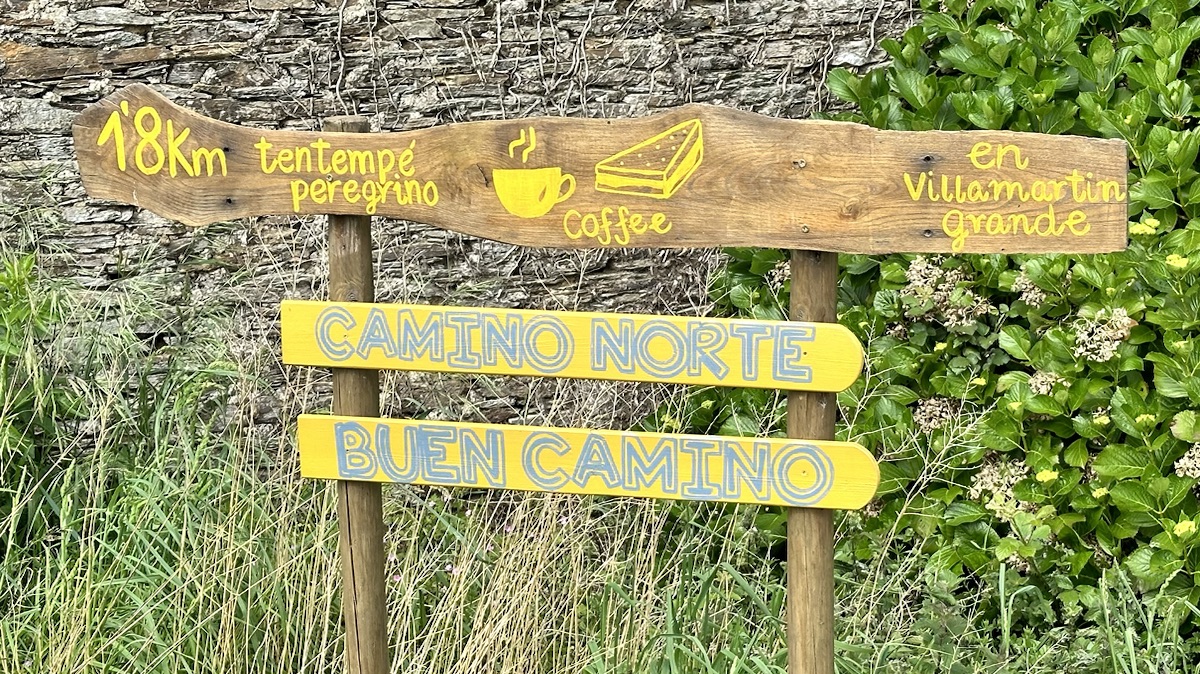 1'8Km
tentempé
peregrino
Coffee
en
Villamartin
grande
CAMINO NORTE
BUEN CAMINO